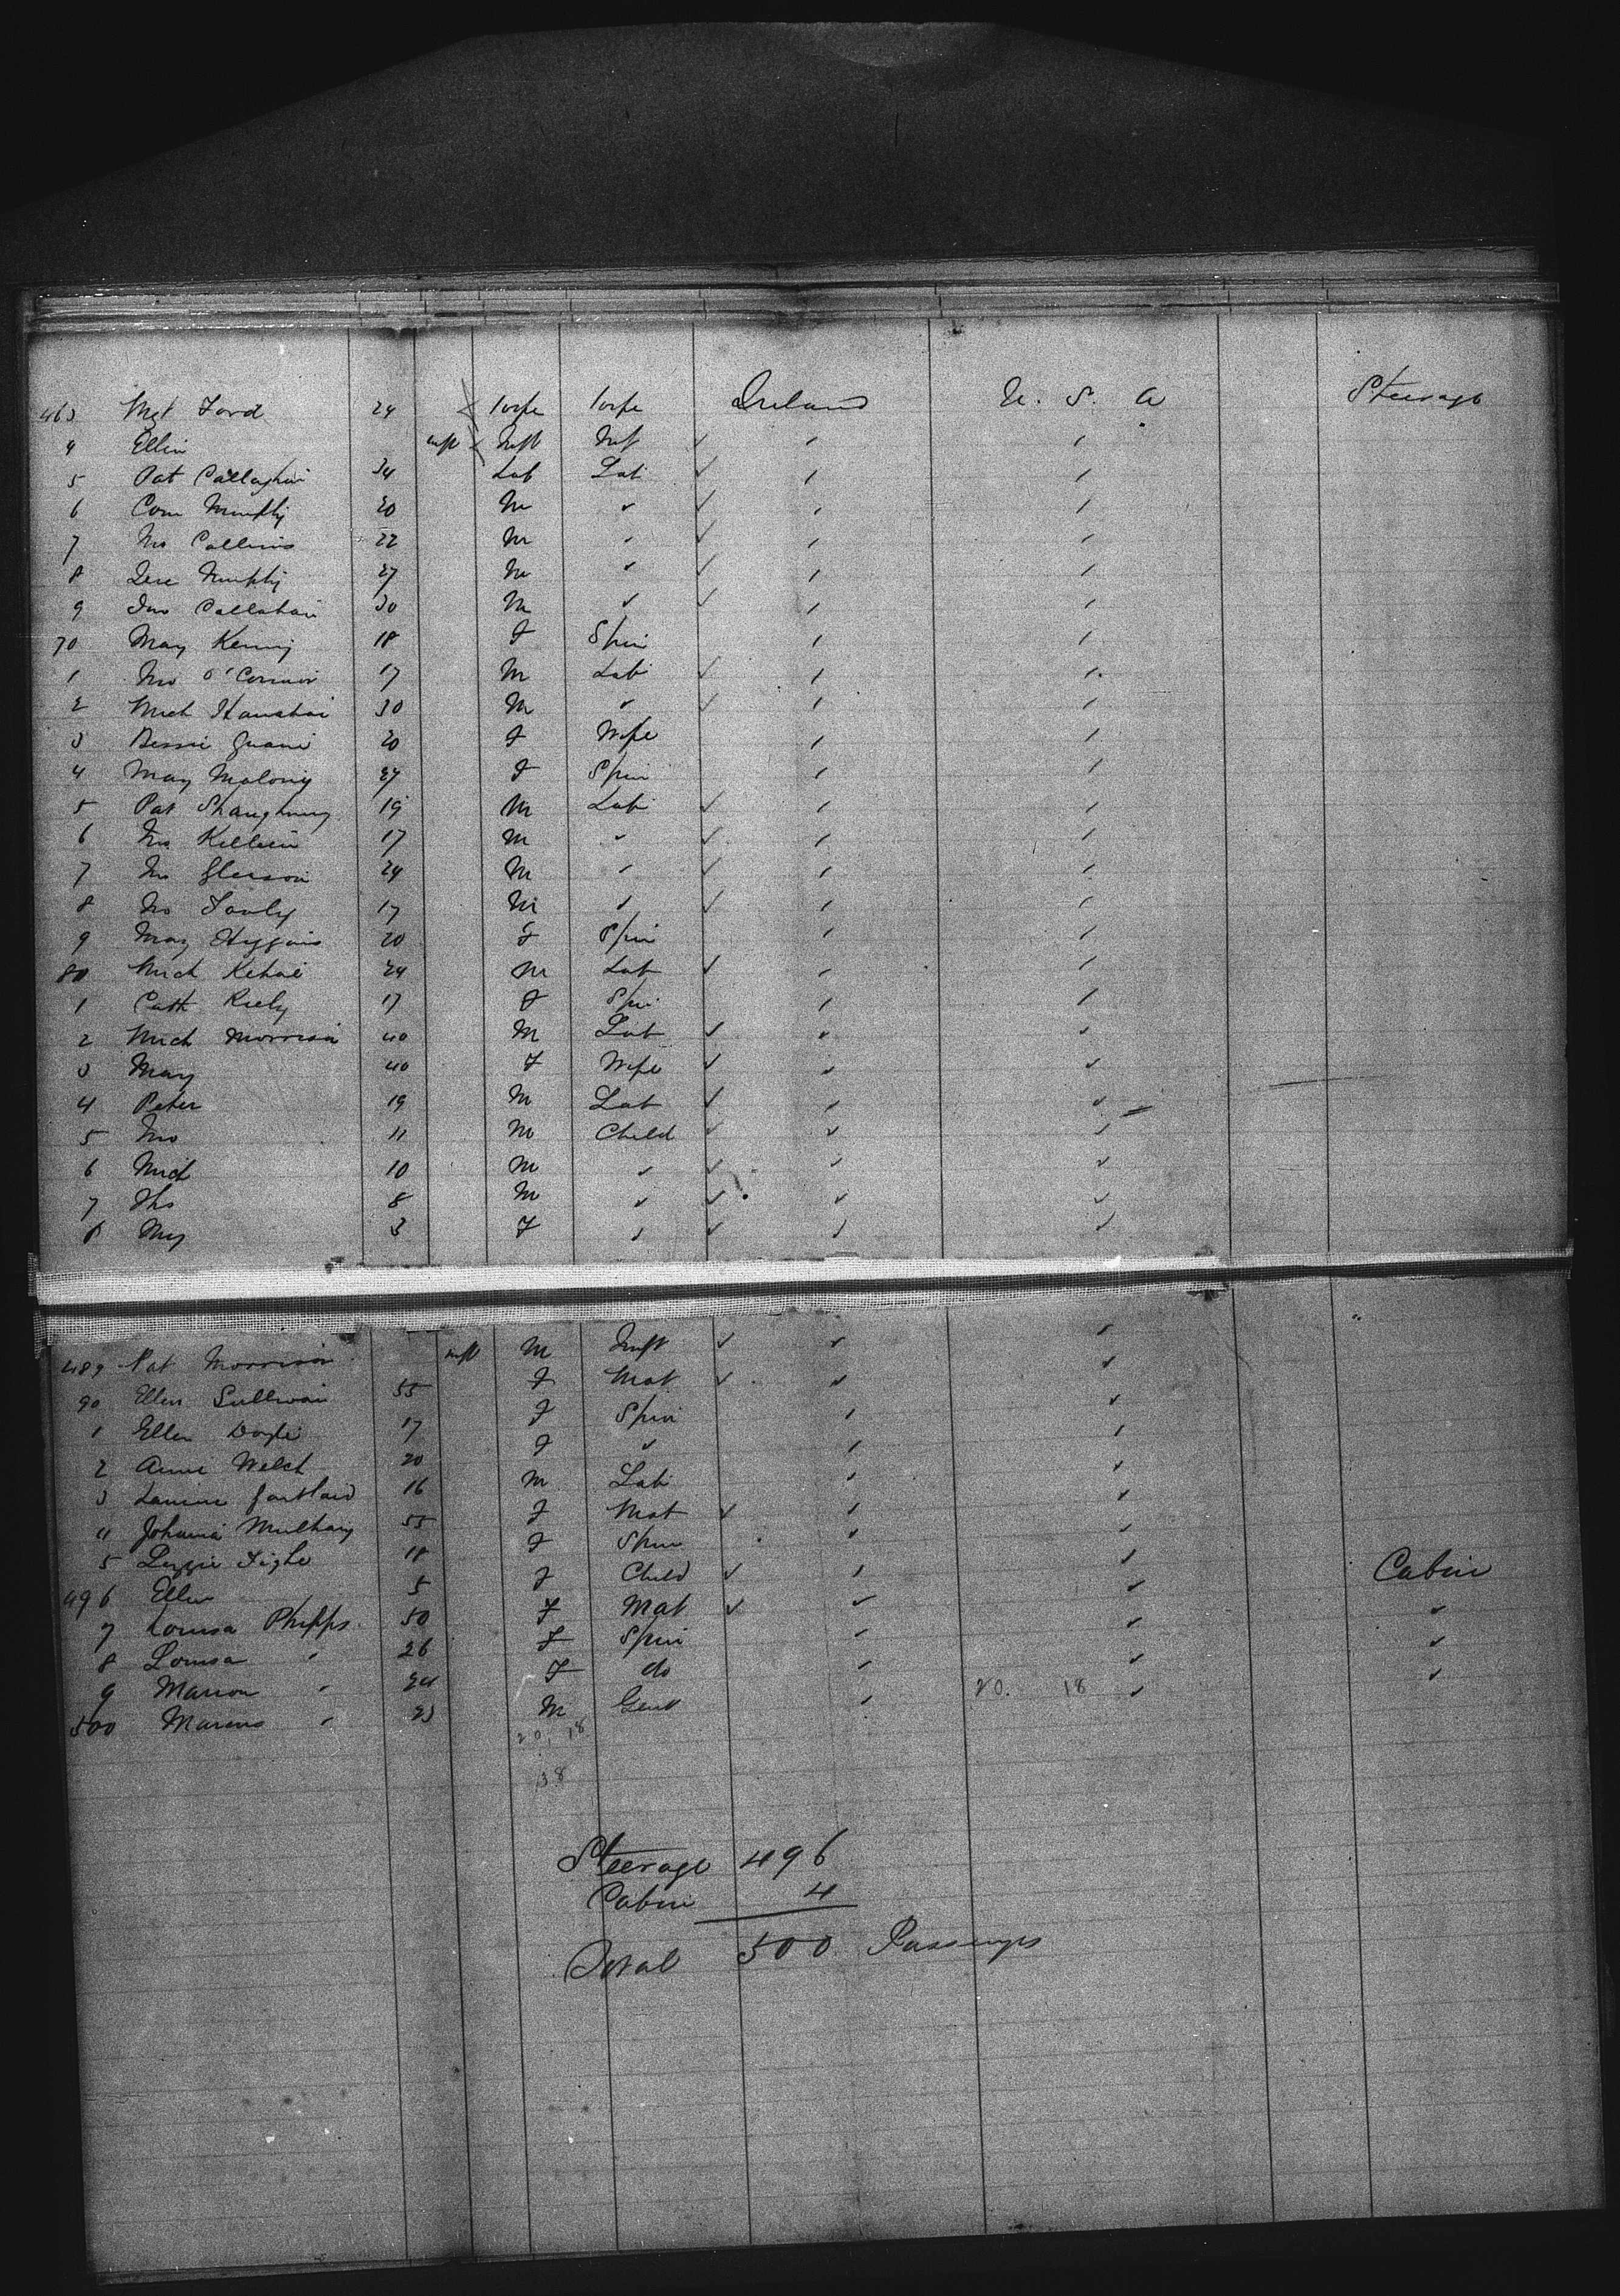 463 Mgt Ford 24 Wife Wife Ireland U. S. A Steerage
4 Ellen inft Inft Inf ✓ ′ ′
5 Pat Callaghan 34 Lab Lab ✓ ′ ′
6 Corn Murphy 20 M ✓ ✓ ′ ′
7 Jno Collins 22 M ′ ✓ ′ ′
8 Jere Murphy 27 M ✓ ✓ ′ ′
9 Jno Callahan 30 M ✓ ✓ ′ ′
70 Mary Kenny 18 F Spin ′ ′
1 Jno O'Connor 17 M Lab ✓ ′ ′
2 Mich Hanahan 30 M ✓ ✓ ′ ′
3 Bessie 20 F Wife ′ ′
4 Mary Malony 27 F Spin ′ ′
5 Pat Shaughnesy 19 M Lab ✓ ′ ′
6 Jno Killein 17 M ✓ ✓ ′ ′
7 Jno Gleeson 24 M ′ ✓ ′ ′
8 Jno 17 M ✓ ✓ ′ ′
9 Mary Higgins 20 F Spin ′ ′
80 Mich Kehoe 24 M Lab ✓ ′ ′
1 Cath Kiely 17 F Spin ′ ′
2 Mich Morrison 40 M Lab ✓ ✓ ✓
3 Mary 40 F Wife ✓ ✓ ✓
4 Peter 19 M Lab ✓ ✓ ✓
5 Jno 11 M Child ✓ ✓ ✓
6 Mich 10 M ✓ ✓ ✓ ✓
7 Ths 8 M ✓ ✓ ✓ ✓
8 My 3 F ✓ ✓ ✓ ✓
489 Pat Morrison inft M Inft ✓ ✓ ✓ "
90 Ellen Sullivan 55 F Mat ✓ ✓ ✓
1 Ellen Doyle 17 F Spin ′ ✓
2 Annie Welch 20 F ✓ ′ ′
3 Gartland 16 M Lab ′ ✓
4 Johanna Mulhany 55 F Mat ✓ ′ ✓
5 Lizzie Tighe 18 F Spin ✓ ′
496 Ellen 5 F Child ✓ ′ ✓
7 Louisa Phipps 50 F Mat ✓ ✓ ✓ Cabin
8 Louisa ″ 26 F Spin ✓ ✓ ✓
9 Marion ″ 24 F do ✓ ✓ ✓
500 Marcus ″ 23 M Gent ✓ 20. 18 ✓ ✓
20, 18
38
Steerage 496
Cabin 4
Total 500 Passengers